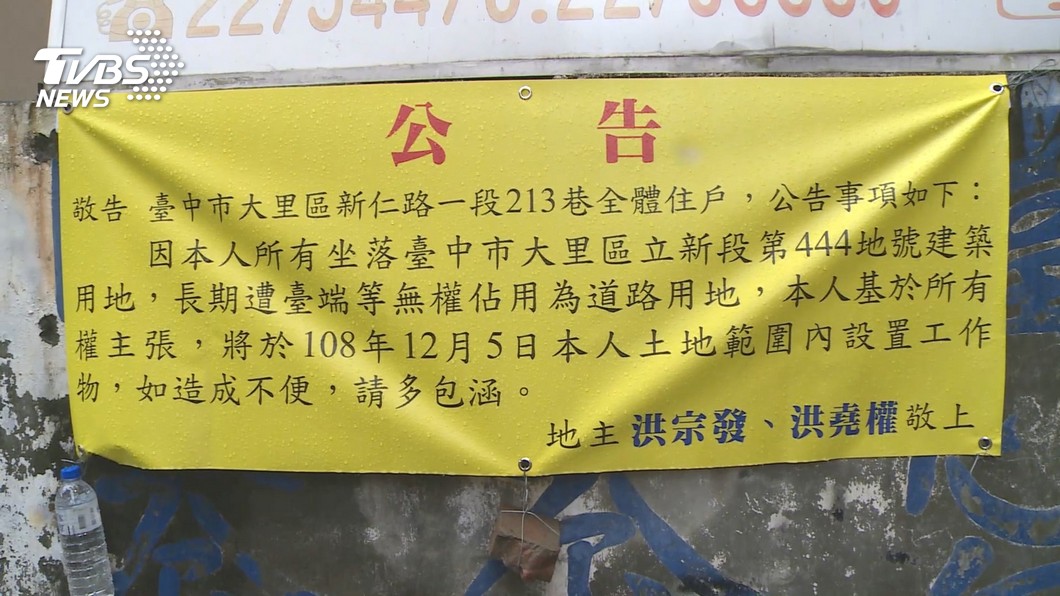 TVBS
NEWS
公告
敬告 臺中市大里區新仁路一段213巷全體住戶，公告事項如下：
因本人所有坐落臺中市大里區立新段第444地號建築
用地，長期遭臺端等無權佔用為道路用地，本人基於所有
權主張，將於108年12月5日本人土地範圍內設置工作
物，如造成不便，請多包涵。
地主 洪宗發、洪堯權 敬上